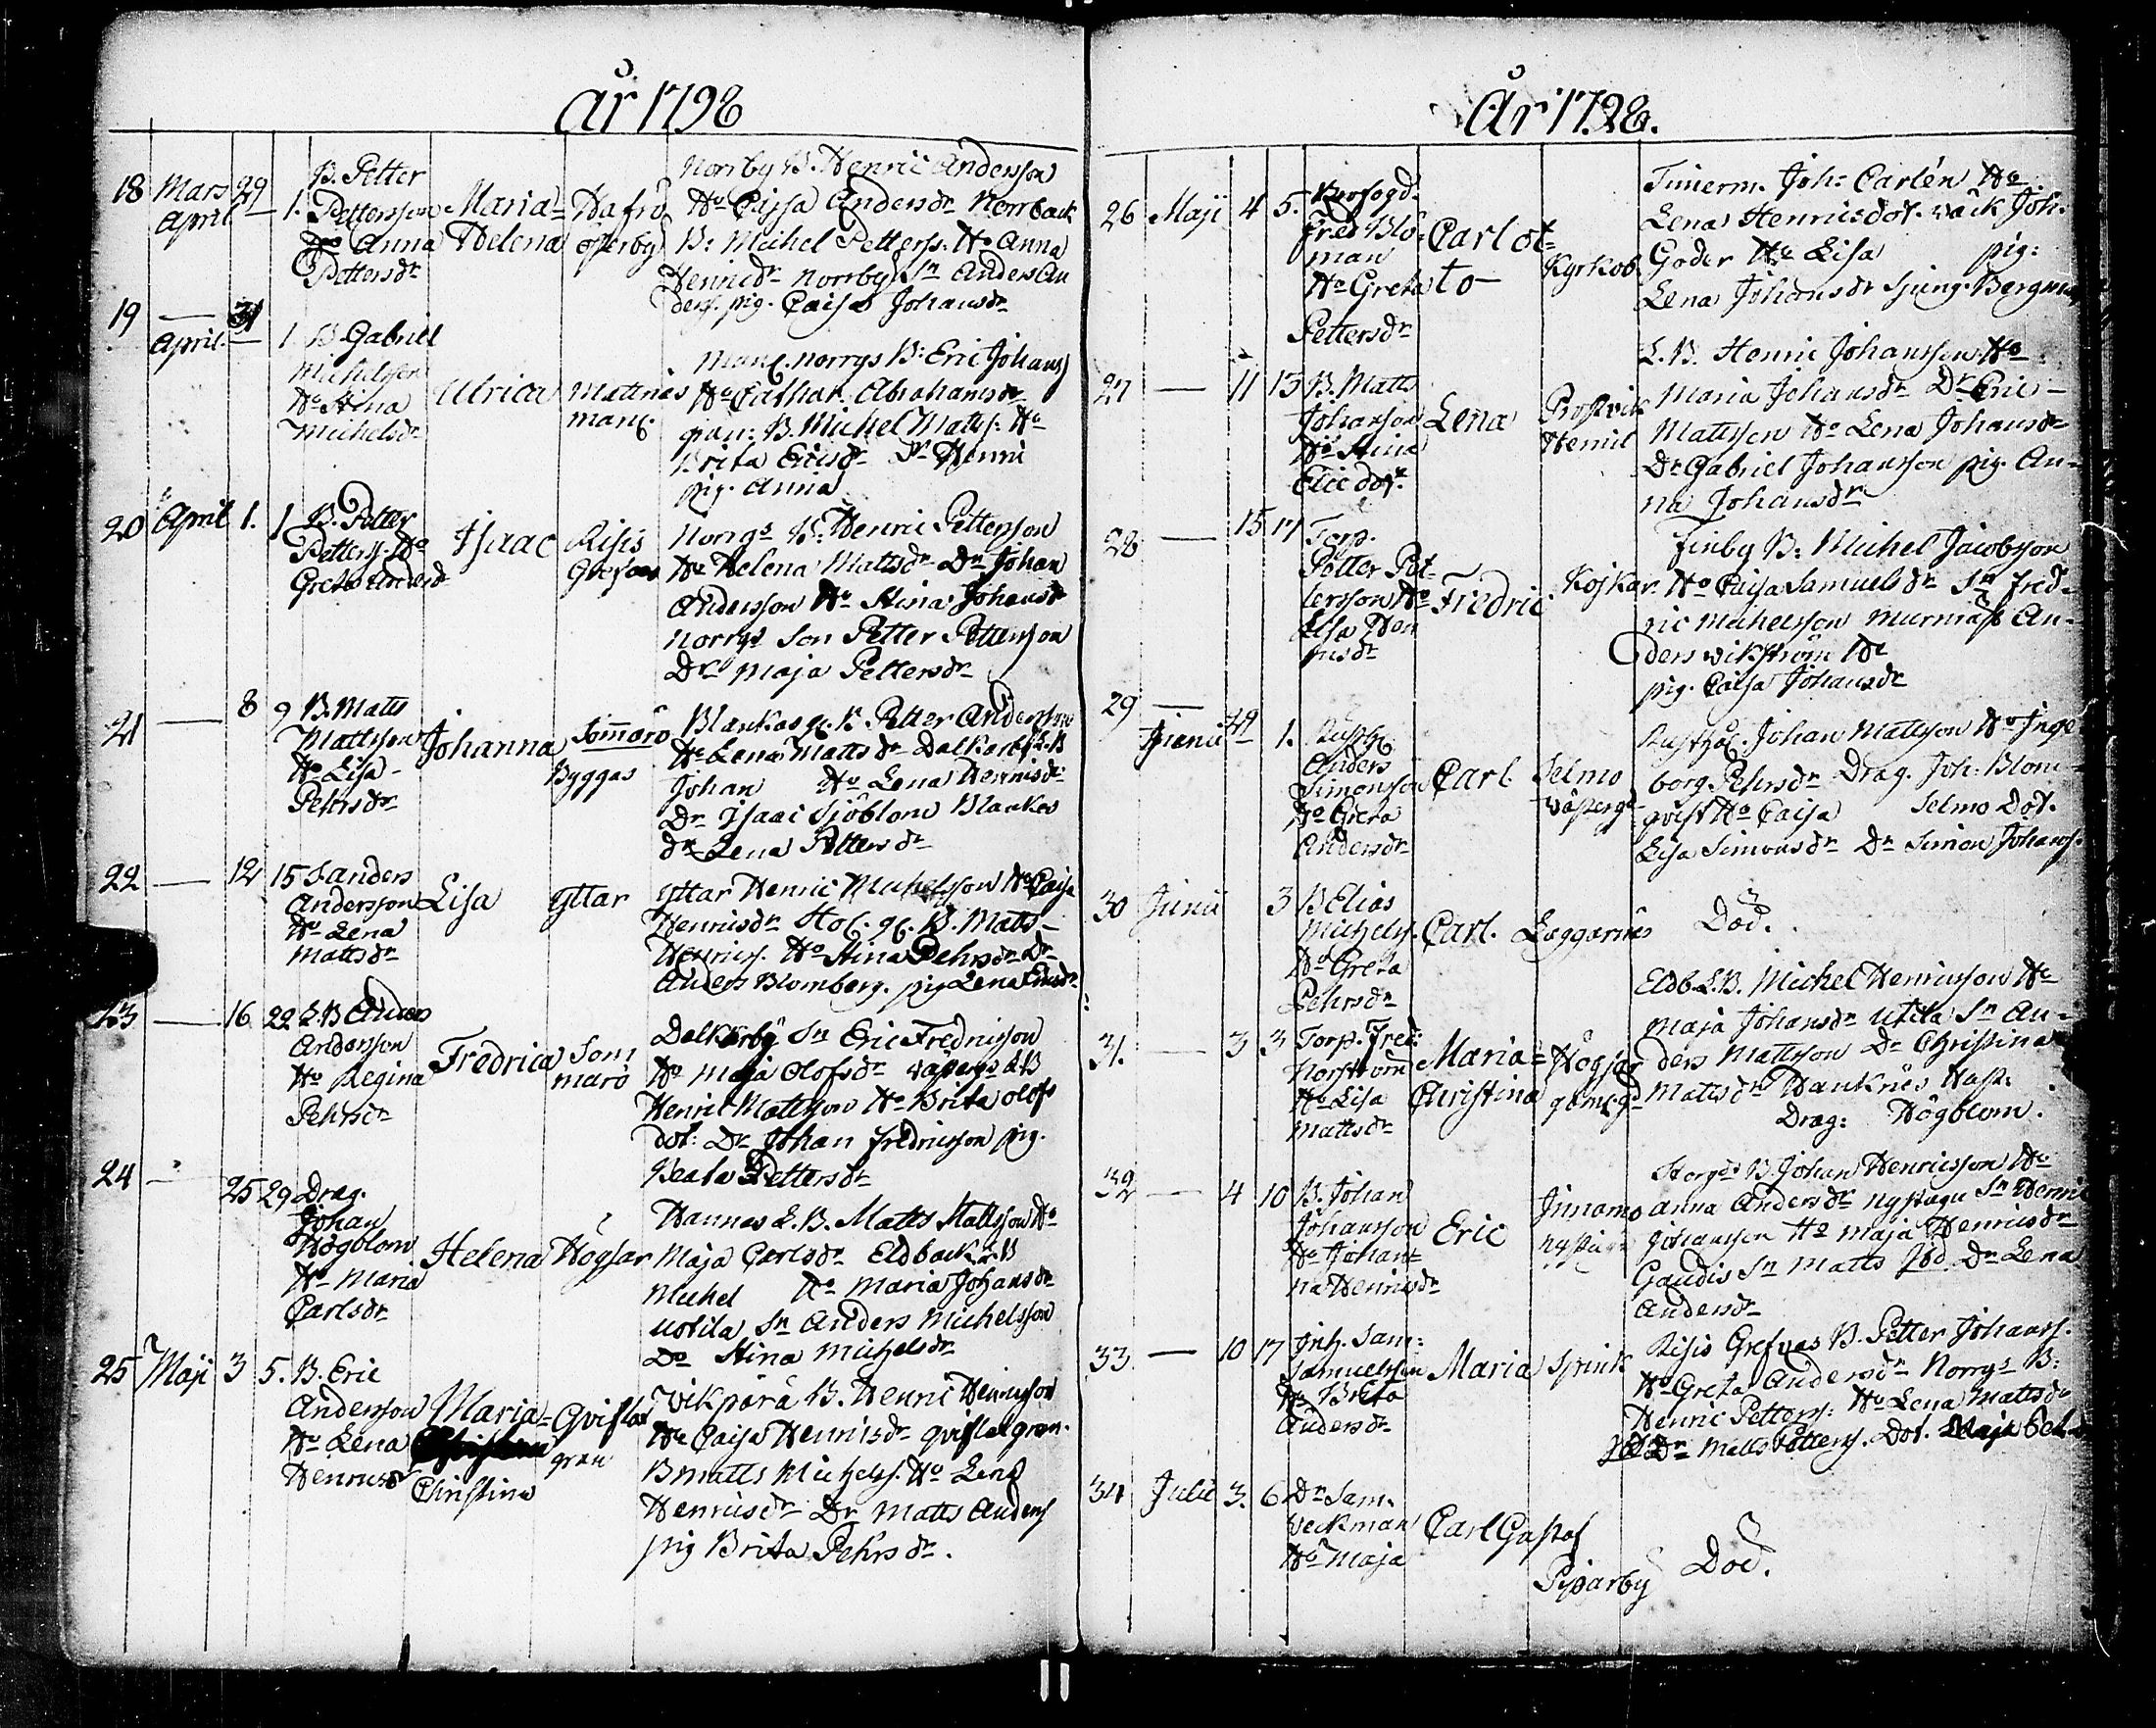 År 1798
18 Mars 29 B. Petter
April 1. Pettersson Maria-
Ho Anna Helena
Pettersdr
Hafrö
österby
Norrby B. Henric Andersson
Ho Caisa Andersdr Norrback
B: Michel Petterss. Ho Anna
Henricdr Norrby Sn Anders An
derss. pig. Caisa Johansdr
19 — 31
April — 1 B Gabriel
Michelsson
Ho Stina
Michelsdr
Ulrica
Mattnäs
mans.
norrgs B: Eric Johanss
Ho Cathar. Abrahamsdr
B. Michel Matts. Ho
Brita Ericsdr Dr Henric
pig. Anna
20 April 1. 1 B. Petter
Petterss. Ho
Greta Andersdr
Isaac
Risis
Grefnas
Norrgs B. Henric Pettersson
Ho Helena Mattsdr Dn Johan
Andersson Ho Stina Johansdr
Norrgs Son Petter Pettersson
Dr Maja Pettersdr
21 — 8 9 B. Matts
Mattsson
Ho Lisa
Pehrsdr
Johanna
Somarö
Byggas
Blankas gs. B. Petter Andersson
Ho Lena Mattsdr Dalkarby L.B
Johan Ho Lena Henricsdr
Dr Isaac Sjöblom Blankas
dr Lena Pettersdr
22 — 12 15 Landers
Andersson
Ho Lena
Mattsdr
Lisa
yttar
yttar Henric Michelsson Ho Caisa
Henricsdr B. Matts
Henricss. Ho Stina Pehrsdr Dr
Anders Blomberg. pig Lena Ericsdr
23 — 16 22 L.B Anders
Andersson
Ho Regina
Pehrsdr
Fredrica
Som
marö
Dalkarby Sn Eric Fredricsson
Ho Maja Olofsdr LB
Henric Mattsson Ho Brita Olofs
dot: Dr Johan Fredricsson pig.
Beata Pettersdr
24 — 25 29 Drag.
Johan
Högblom
Ho Maria
Carlsdr
Helena Högsar
Hannas L.B. Matts Mattsson Ho
Maja Carlsdr Eldback L.B
Michel Ho Maria Johansdr
Utila Sn Anders Michelsson
Do Stina Michelsdr
25 Maji 3 5. B. Eric
Andersson
Ho Lena
Henricsdr
Maria-
Christina
Qvistlax
gran
Vikpärä B. Henric Henricsson
Ho Caisa Henricsdr qvistlax gran.
B Matts Michelss. Ho Lena
Henricsdr Dr Matts Anderss
pig Brita Pehrsdr.
År 1798.
26 Maji 4 5. Krofogd.
Fred Blo-
man
Ho Greta
Pettersdr
Carlot-
to
Kyrkob.
Timerm. Joh: Carlén Ho
Lena Henricsdot. wäck Joh.
Goder Ho Lisa pig:
Lena Johansdr Bergman
27 — 11 13 B. Matts
Johansson
Ho Stina
Eric dot.
Lena
Prostvik
Hemil
L.B. Henric Johansson Ho
Maria Johansdr Dr Eric
Mattsson Ho Lena Johansdr
Dr Gabriel Johansson pig. An-
na Johansdr
28 — 15 17 Torp.
Petter Pet-
tersson Ho
Lisa Hen
ricsdr
Fredric
Kojkar.
Finby B: Michel Jacobsson
Ho Caisa Samuelsdr Sn Fred-
ric Michelsson Murmäst An-
ders Wikström Ho
pig. Caisa Johansdr
29 — 29
Junii 1. Rusth.
Anders
Simonsson
Ho Greta
Andersdr
Carl
Selmo
wäperg
Rusthol. Johan Mattsson Ho Inge
borg. Pehrsdr Drag. Joh: Blom-
qvist Ho Caisa Selmo Dot.
Lisa Simonsdr Dr Simon Johanss.
30 Junii 3 B Elias
Michelss.
Ho Greta
Pehrsdr
Carl.
Laggarnäs
Död.
31. — 3 3 Torp. Fred:
Norström
Ho Lisa
Mattsdr
Maria-
Christina
Högsar
Eldb. L.B. Michel Henricsson Ho
Maja Johansdr Utila Sn An-
ders Mattsson Dr Christina
Mattsdr Hanknäs
Drag: Högblom.
32 — 4 10 B. Johan
Johansson
Ho Johan-
na Henricsdr
Eric
Innamo
nystugu
Storgs B Johan Henricsson Ho
Anna Andersdr nystugu Sn Henric
Johansson Ho Maja Henricsdr
Gaudis Sn Matts Dr Lena
Andersdr
33. — 10 17 Inh. Sam:
Samuelsson
Ho Brita
Andersdr
Maria
Spink
Risis Grefnas B. Petter Johanss.
Ho Greta Andersdr Norrgs B:
Henric Petterss: Ho Lena Mattsdr
Dr Matts Petterss. Dot. Maja
34 Julii 3. 6 Dn Sam.
Veckman
Ho Maja
Carl Gustaf
Piparby
Död.